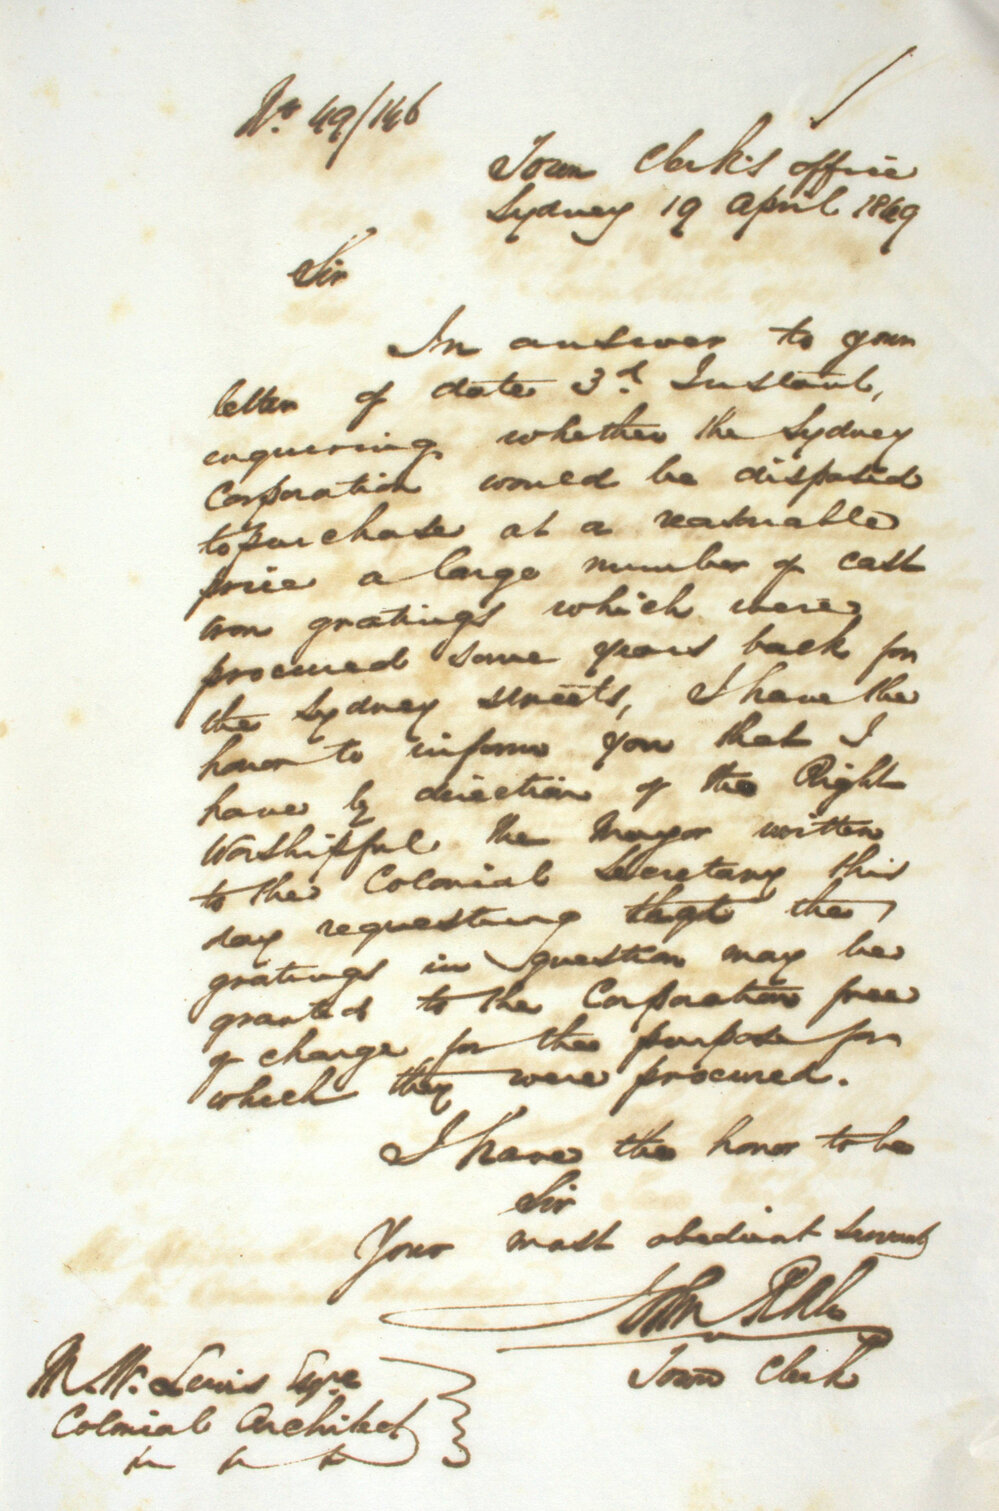 No. 49/146
Town Clerk's office
Sydney 19 April 1849
Sir
In answer to your
letter of date 3d. Instant,
enquiring whether the Sydney
Corporation would be disposed
to purchase at a reasonable
price a large number of cast
iron gratings which were
procured some years back for
the Sydney streets, I have the
honor to inform you that I
have by direction of the Right
Worshipful the Mayor written
to the Colonial Secretary this
day requesting that the
gratings in question may be
granted to the Corporation free
of charge for the purpose for
which they were procured.
I have the honor to be
Sir
Your most obedient Servant
John
Town Clerk
M. W. Lewis Esqre
Colonial Architect